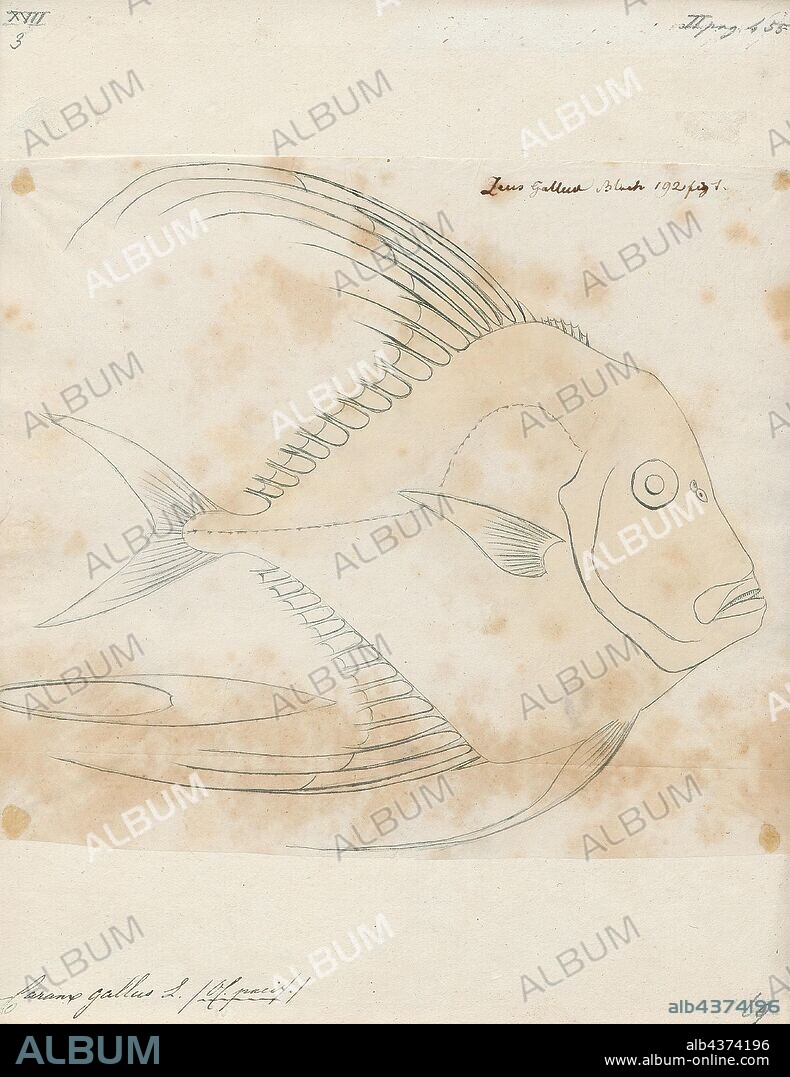 XVIII
3
II pag. b 55
Zeus Gallus Bloch 192 fig 1.
Caranx gallus L.
alb4374196
ALBUM
alb4374196
www.album-online.com